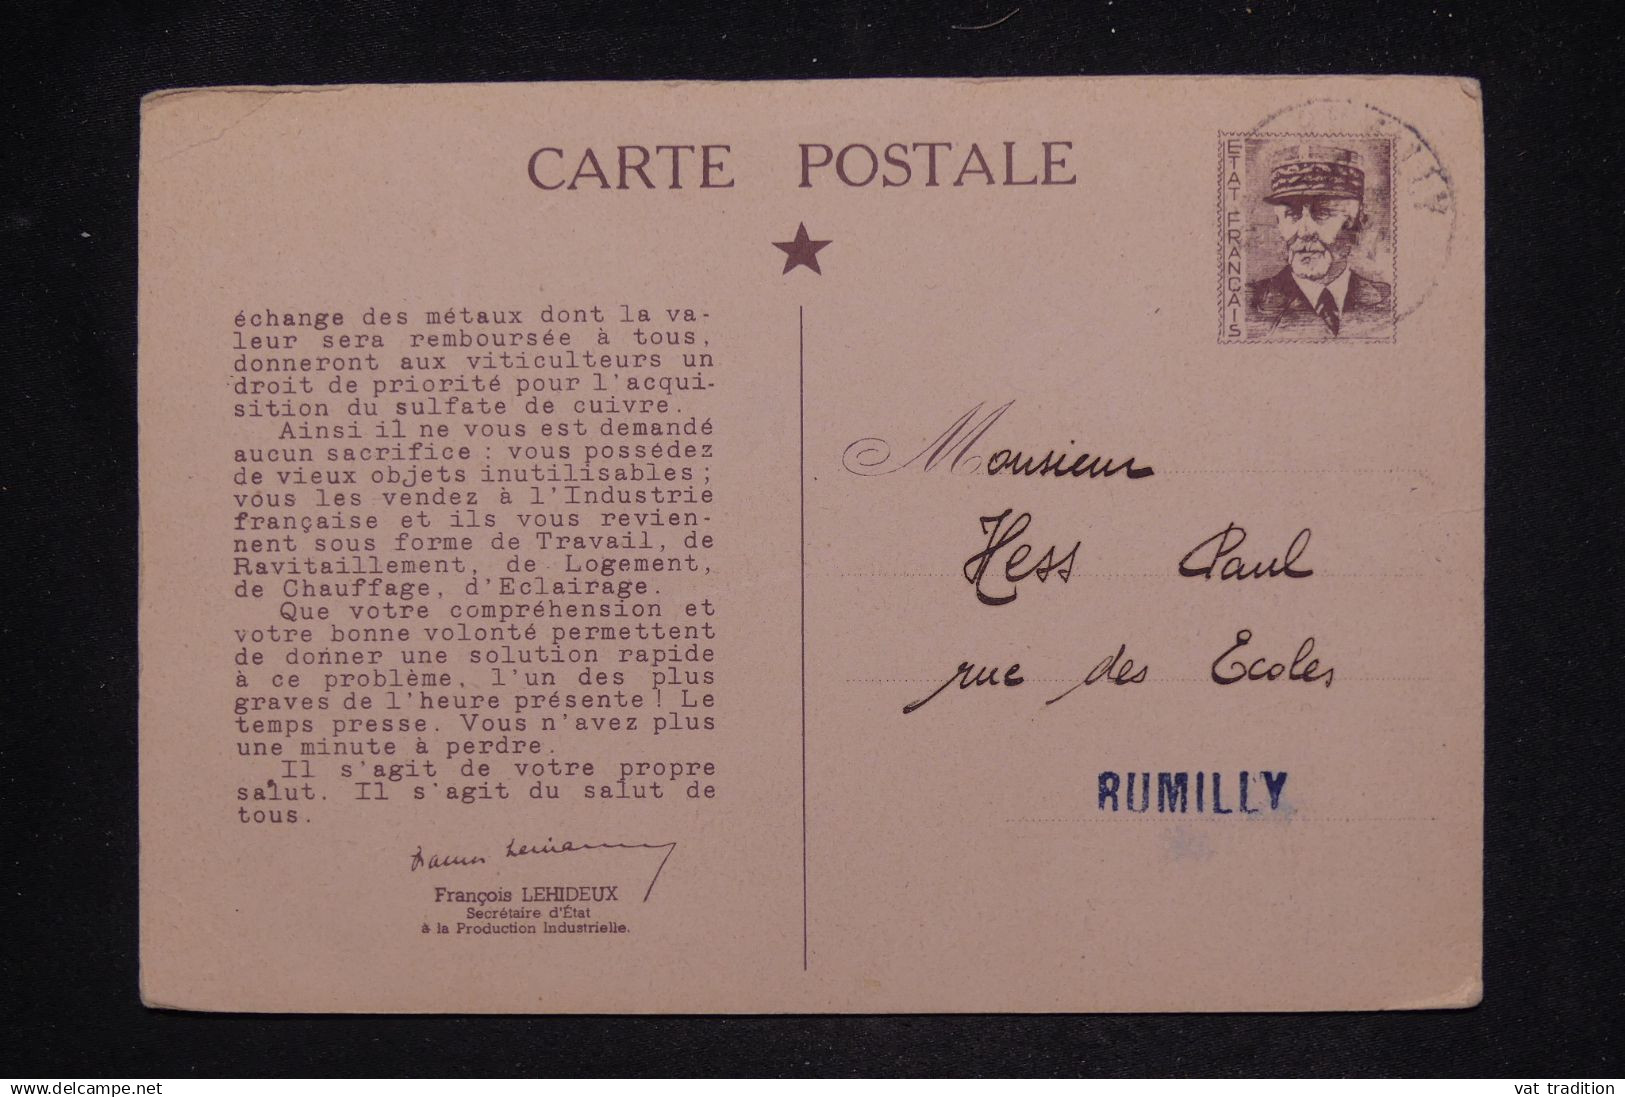 CARTE POSTALE
ETAT FRANÇAIS
échange des métaux dont la va-
leur sera remboursée à tous,
donneront aux viticulteurs un
droit de priorité pour l'acqui-
sition du sulfate de cuivre.
Ainsi il ne vous est demandé
aucun sacrifice : vous possédez
de vieux objets inutilisables ;
vous les vendez à l'Industrie
française et ils vous revien-
nent sous forme de Travail, de
Ravitaillement, de Logement,
de Chauffage, d'Eclairage.
Que votre compréhension et
votre bonne volonté permettent
de donner une solution rapide
à ce problème, l'un des plus
graves de l'heure présente ! Le
temps presse. Vous n'avez plus
une minute à perdre.
Il s'agit de votre propre
salut. Il s'agit du salut de
tous.
François LEHIDEUX
Secrétaire d'État
à la Production Industrielle.
Monsieur
Hess Paul
rue des Ecoles
RUMILLY
delcampe.net
vat tradition